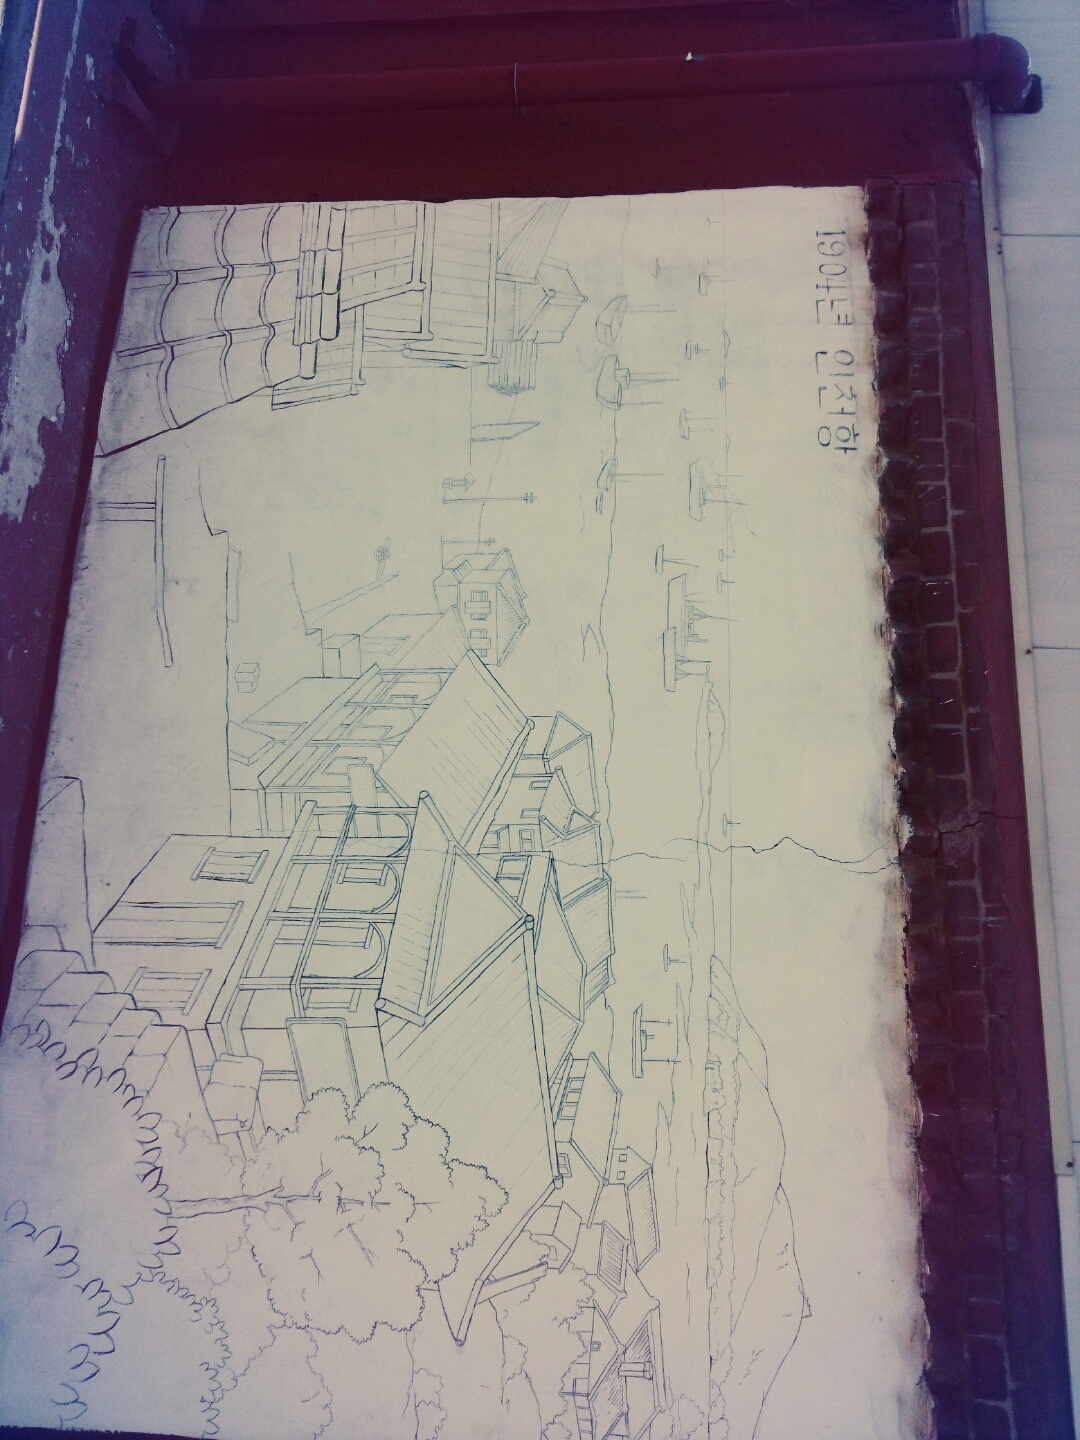 1904년 인천항